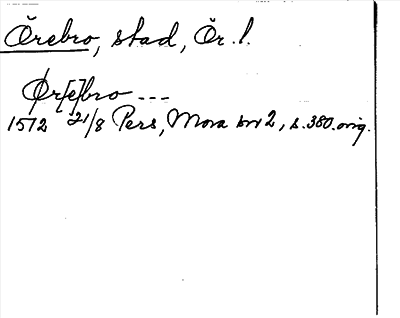 Örebro, stad, Ör. l.
Ør[e]bro ---
1572 21/8 Pers, Mora br 2, s. 360. orig.